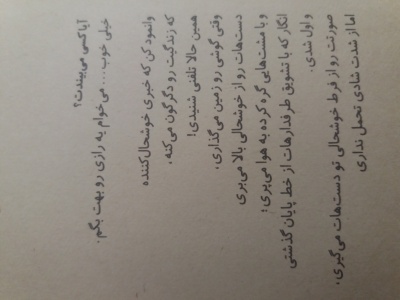 آیا کسی می‌بیندت؟
خیلی خوب .... می‌خوام یه رازی رو بهت بگم.
وانمود کن که خبری خوشحال‌کننده
که زندگیت رو دگرگون می‌کنه،
همین حالا تلفنی شنیدی!
وقتی گوشی رو زمین می‌گذاری،
دست‌هات رو از خوشحالی بالا می‌بری
و با مشت‌هایی گره کرده به هوا می‌پری؛
انگار که با تشویق طرفدارهات از خط پایان گذشتی
و اول شدی.
صورتت رو از فرط خوشحالی تو دست‌هات می‌گیری،
اما از شدت شادی تحمل نداری